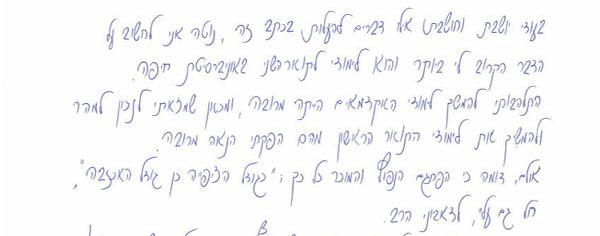 בעודי יושבת וחושבת אלו דברים להעלות בכתב זה, נוטה אני לחשוב על
הדבר הקרוב לי ביותר והוא לימודי לתואר השני באוניברסיטת חיפה.
התלהבותי להמשך לימודי האקדמאים הייתה מרובה, ומכאן שמצאתי לנכון למהר
ולהמשיך את לימודי התואר הראשון מהם הפקתי הנאה מרובה.
אולם, דומה כי הפתגם הנפוץ והמוכר כל כך: "כגודל הציפייה כן גודל האכזבה",
חל גם עלי, לדאבוני הרב.